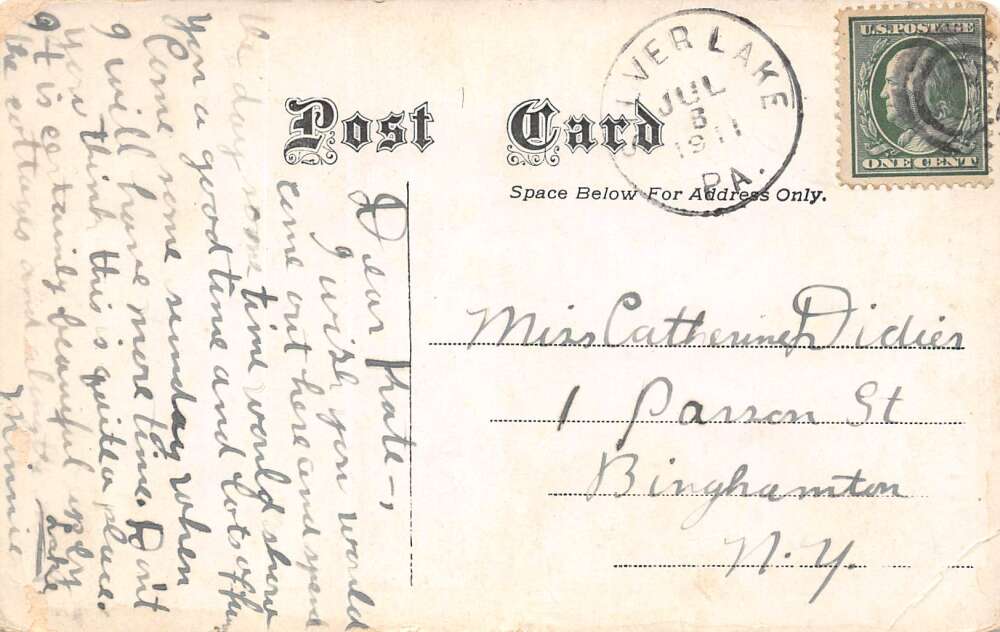 Post Card
Space Below For Address Only.
SILVER LAKE
JUL
1911
PA.
U.S. POSTAGE
ONE CENT
Miss Catherine Didier
1 Parson St
Binghamton
N.Y.
Dear Kate—,
I wish you would
come out here and spend
the day some time would show
you a good time and lots of fun
Come some sunday when
I will have more time. Don't
you think this is quite a place.
It is certainly beautiful only
the cottages and
Lake
Minnie